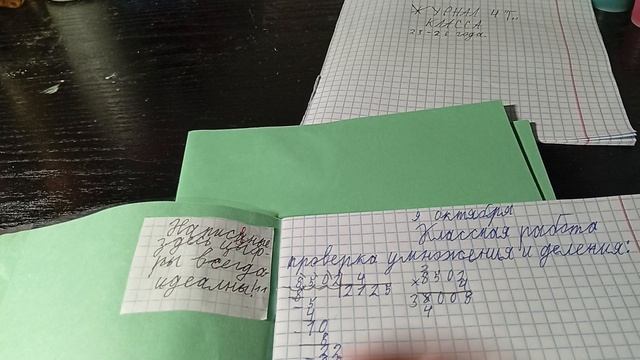 ЖУРНАЛ 4 Т..
КЛАССА
25-26 года.
Написаные
здесь циф-
ры всегда
идеалны!!!
9 октября
Классная работа
проверка умножения и деления:
8502 4
8 2125
5
4
10
8
22
3
8502
× 4
38008
4